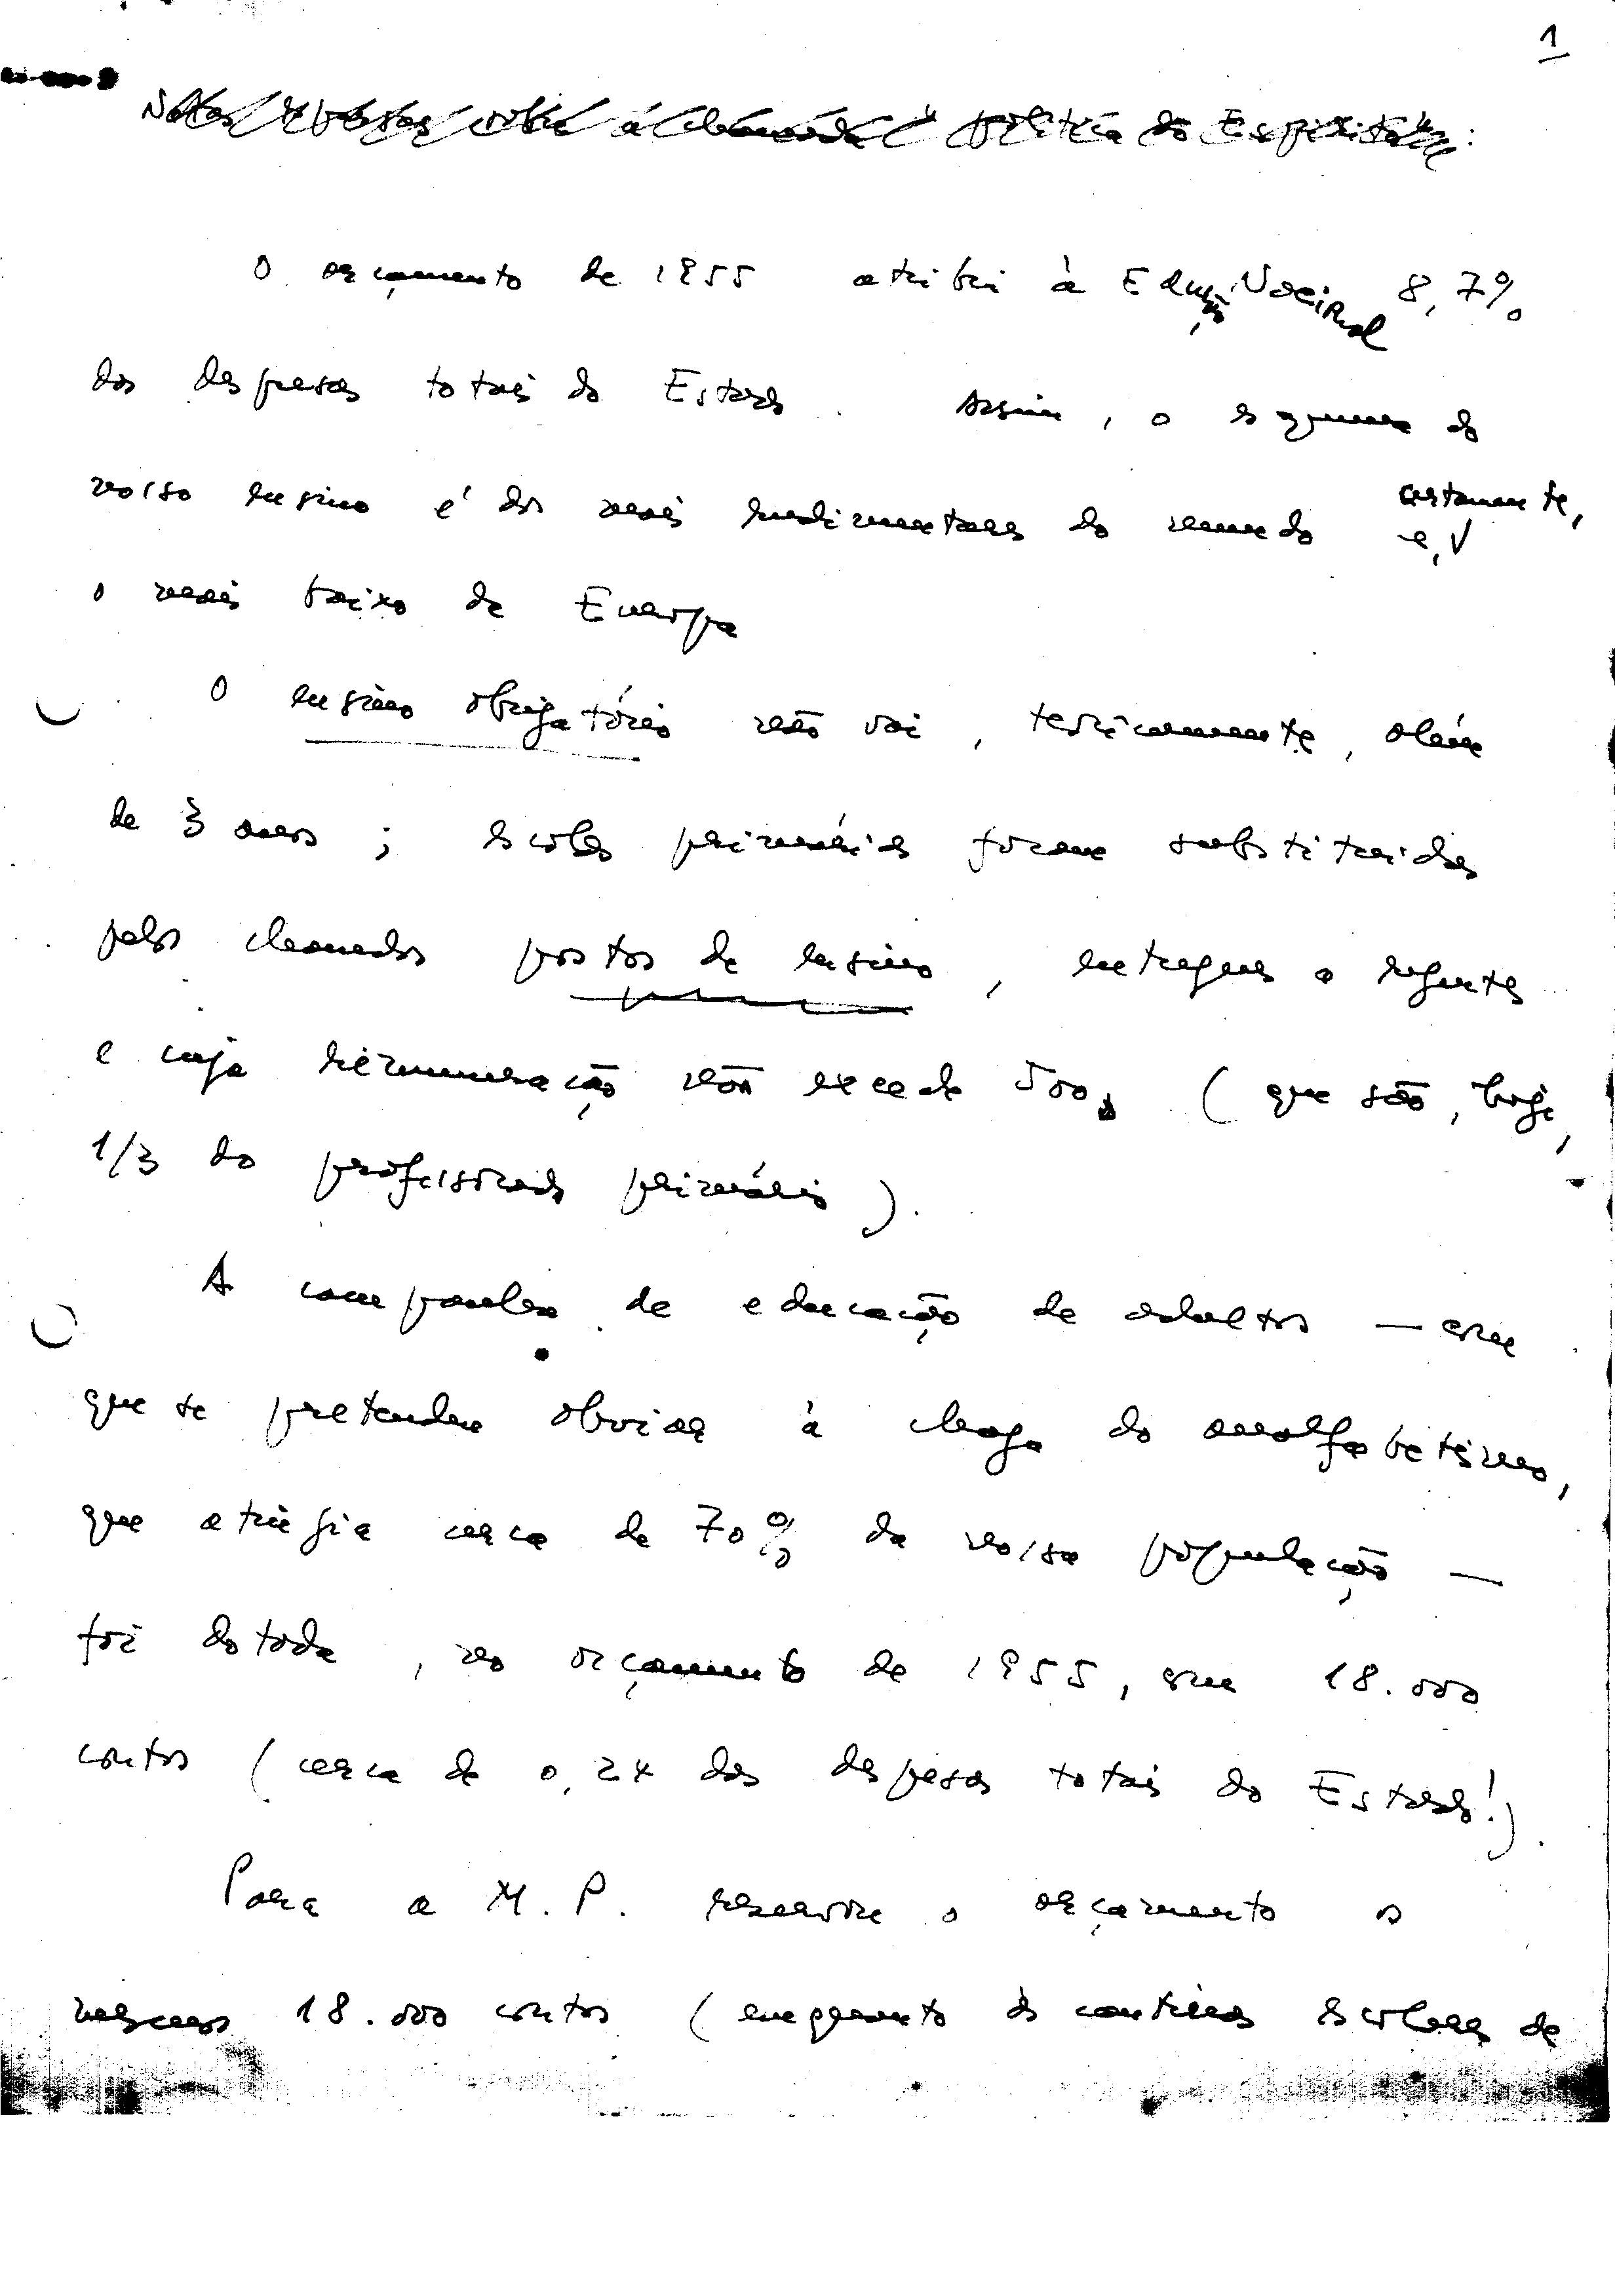 1
Notas sobre a chamada "política do Espírito":
O orçamento de 1955 atribui à Educação Nacional 8,7%
das despesas totais do Estado. Assim, o esquema do
nosso ensino é dos mais rudimentares do mundo e, certamente,
o mais baixo da Europa
O ensino obrigatório não vai, teoricamente, além
de 3 anos; escolas primárias foram substituidas
pelos chamados postos de ensino, entregues a regentes
e cuja remuneração não excede 500$ (que são, hoje,
1/3 do professorado primário).
A campanha de educação de adultos — com
que se pretendeu obviar à chaga do analfabetismo,
que atingia cerca de 70% da nossa população —
foi dotada, no orçamento de 1955, com 18.000
contos (cerca de 0,24 das despesas totais do Estado!).
Para a M.P. reserva o orçamento os
mesmos 18.000 contos (enquanto às cantinas escolares se